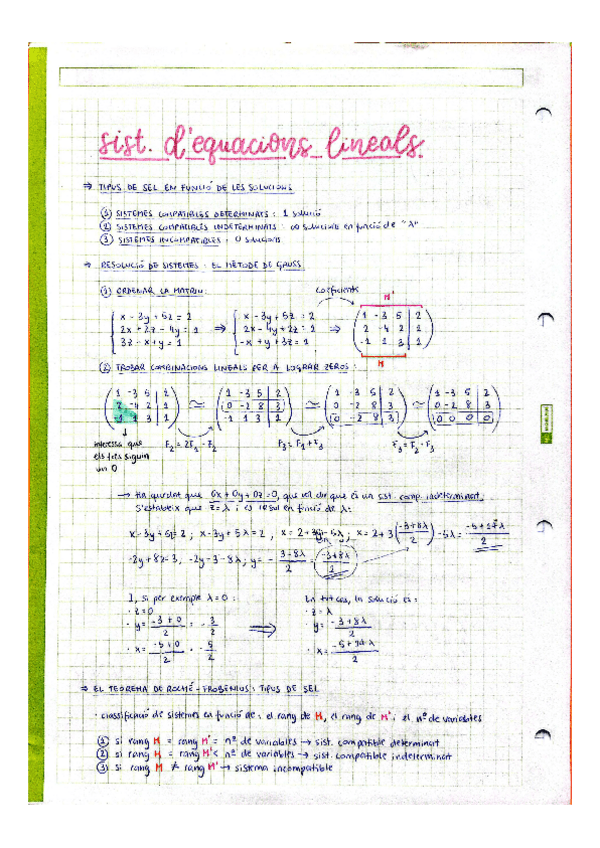 sist. d'equacions lineals
⇒ TIPUS DE SEL EM FUNCIÓ DE LES SOLUCIONS
① SISTEMES COMPATIBLES DETERMINATS : 1 solució
② SISTEMES COMPATIBLES INDETERMINATS : ∞ solucions en funció de "λ"
③ SISTEMES INCOMPATIBLES : 0 solucions
⇒ RESOLUCIÓ DE SISTEMES : EL MÈTODE DE GAUSS
① ORDENAR LA MATRIU:
coeficients M'
x - 3y + 5z = 2
2x + 2z - 4y = 1
3z - x + y = 1
⇒
x - 3y + 5z = 2
2x - 4y + 2z = 1
-x + y + 3z = 1
⇒
1 -3 5 | 2
2 -4 2 | 1
-1 1 3 | 1
M
② TROBAR COMBINACIONS LINEALS PER A LOGRAR ZEROS :
1 -3 5 | 2
2 -4 2 | 1
-1 1 3 | 1
≃
1 -3 5 | 2
0 -2 8 | 3
-1 1 3 | 1
≃
1 -3 5 | 2
0 -2 8 | 3
0 -2 8 | 3
≃
1 -3 5 | 2
0 -2 8 | 3
0 0 0 | 0
interessa que
els tres siguin
un 0
F₂ = 2F₁ - F₂
F₃ = F₁ + F₃
F₃ = F₂ - F₃
→ Ha quedat que 0x + 0y + 0z = 0, que vol dir que és un sist. comp. indeterminat.
S'estableix que z = λ i es resol en funció de λ:
x - 3y + 5z = 2 ; x - 3y + 5λ = 2 , x = 2 + 3y - 5λ ; x = 2 + 3(-3+8λ/2) - 5λ = -5+14λ/2
-2y + 8z = 3, -2y = 3 - 8λ ; y = - 3-8λ/2 = -3+8λ/2
I, si per exemple λ = 0 :
· z = 0
· y = -3+0/2 = -3/2
· x = -5+0/2 = -5/2
⇒
En tot cas, la solució és :
· z = λ
· y = -3+8λ/2
· x = -5+14λ/2
⇒ EL TEOREMA DE ROCHÉ-FROBENIUS : TIPUS DE SEL
· classificació de sistemes en funció de : el rang de M, el rang de M' i el nº de variables
① si rang M = rang M' = nº de variables → sist. compatible determinat
② si rang M = rang M' < nº de variables → sist. compatible indeterminat
③ si rang M ≠ rang M' → sistema incompatible